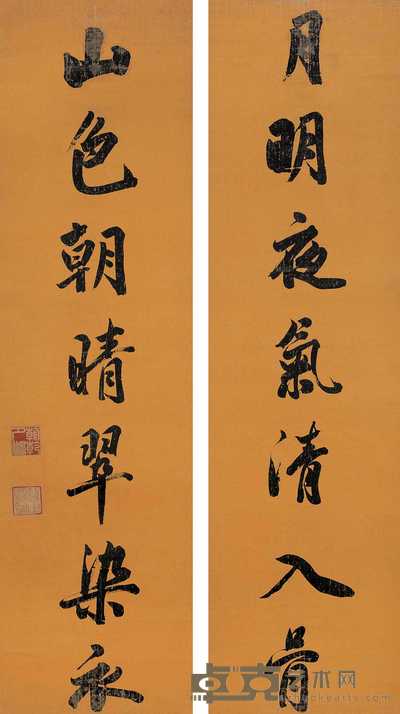 月明夜氣清入骨
山色朝晴翠染衣
卓克艺术网